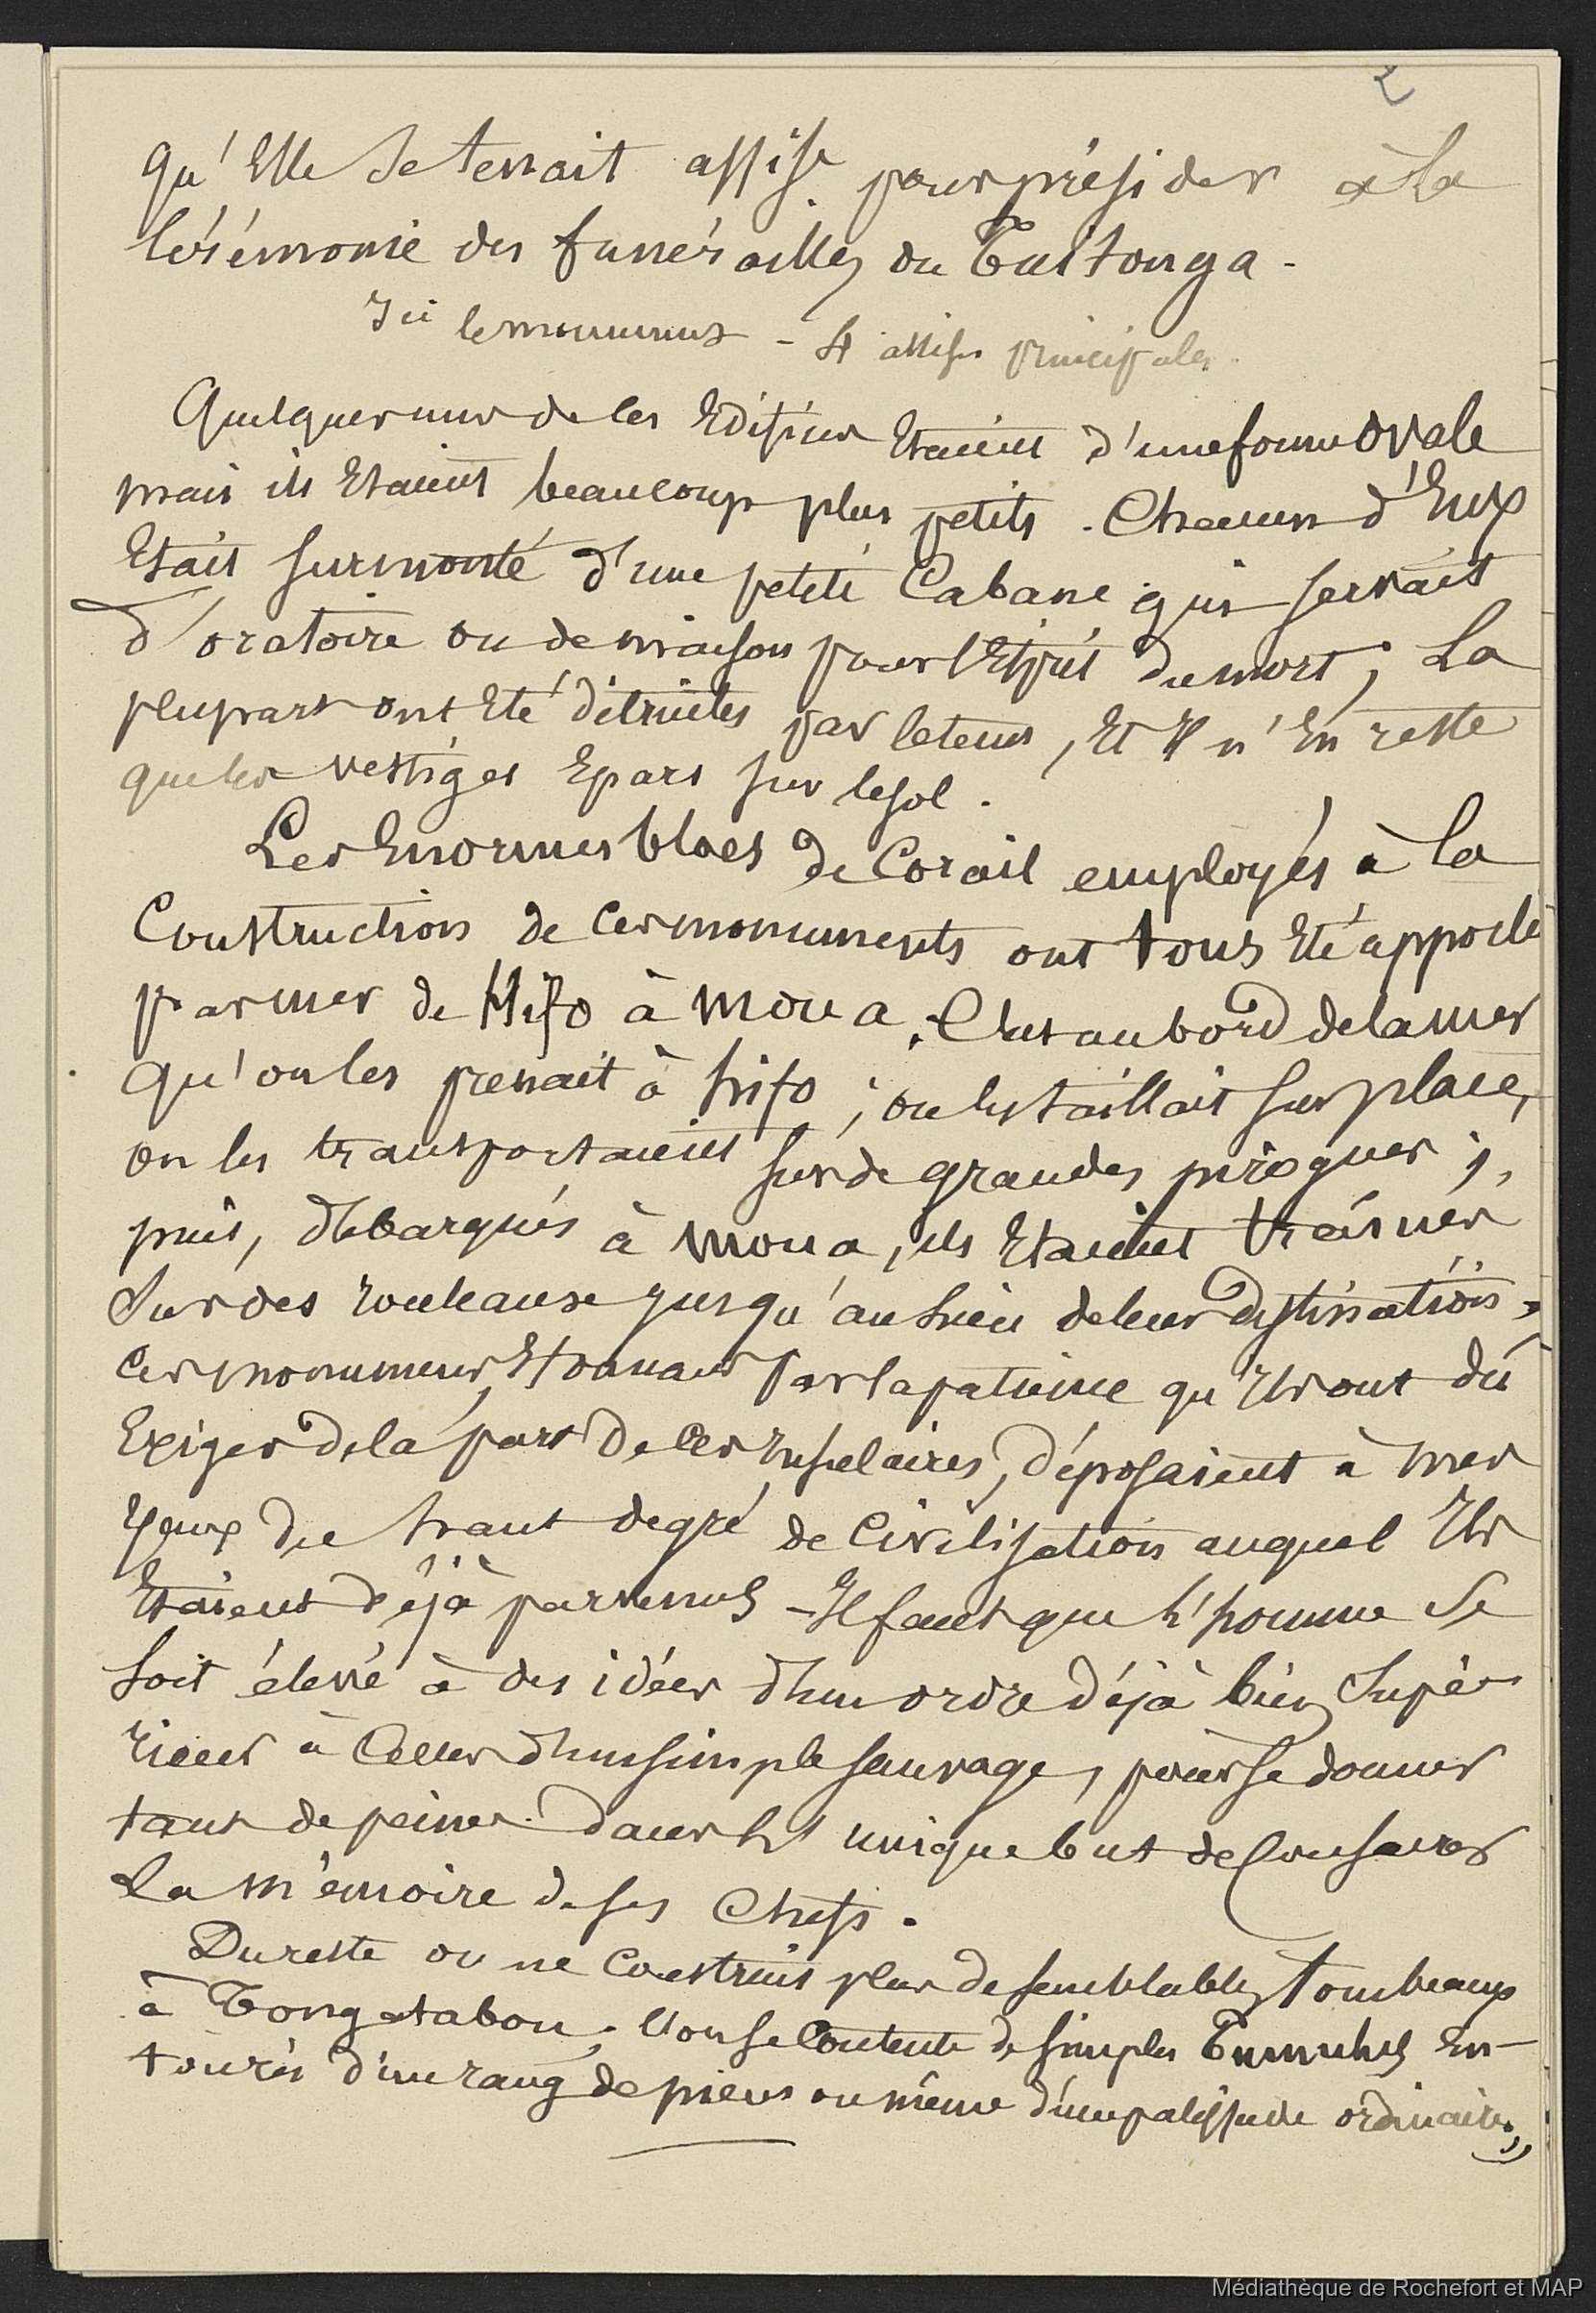 2
qu'Elle se tenait assise pour présider à La
Cérémonie des funérailles du Tuitonga.
Ici le monument - 4 assises principales.
Quelques uns de ces Edifices Etaient d'une forme ovale
mais ils Etaient beaucoup plus petits. Chacun d'Eux
Etait surmonté d'une petite Cabane qui servait
d'oratoire ou de maison pour l'Esprit du mort; La
plupart ont Eté détruites par le tems, Et Il n'En reste
que les vestiges Epars sur le sol.
Les Enormes blocs de Corail employés à La
Construction de Ces monuments ont tous Eté apporté
par mer de Hifo à Moua. C'est au bord de la mer
qu'on les prenait à hifo; on les taillait sur place,
on les transportaient sur de grandes pirogues;,
puis, débarqués à Moua, ils Etaient trainés
Sur des rouleaux jusqu'au Lieu de leur destination.
Ces monumens, Etonnans par la patience qu'Ils ont dû
Exiger de la part de Ces Insulaires, déposaient à mes
yeux du haut degré de Civilisation auquel Ils
Etaient déjà parvenus - Il faut que L'homme Se
soit élevé à des idées d'un ordre déjà bien Supé-
rieur à Celles d'un simple sauvage, pour se donner
tant de peines dans L' unique but de Consacrer
La mémoire de ses Chefs.
Du reste on ne Construit plus de semblables tombeaux
à Tongatabou. L'on se Contente de simples Tumulus En-
tourés d'un rang de pieux ou même d'une palissade ordinaire.»
Médiathèque de Rochefort et MAP